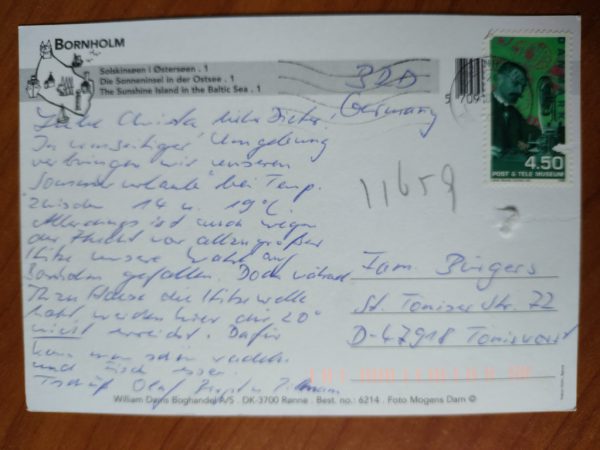 BORNHOLM
Solskinsøen i Østersøen . 1
Die Sonneninsel in der Ostsee . 1
The Sunshine Island in the Baltic Sea . 1
BRD
Germany
5 709
DANMARK
4.50
POST & TELE MUSEUM
Liebe Christa, lieber Dieter,
In Umgebung
verbringen wir unseren
"Sommerurlaub" bei Temp.
zwischen 14 u. 19°C.
Allerdings ist auch wegen
der Flucht vor allzu großer
Hitze unsere Wahl auf
Bornholm gefallen. Doch während
Ihr zu Hause die Hitzewelle
habt, werden hier die 20°
nicht erreicht. Dafür
kann man schön radeln
und Fisch essen.
Tschüß Olaf
11659
Fam. Bürgers
St. Töniser Str. 22
D-47918 Tönisvorst
William Dams Boghandel A/S . DK-3700 Rønne . Best. no.: 6214 . Foto Mogens Dam ©